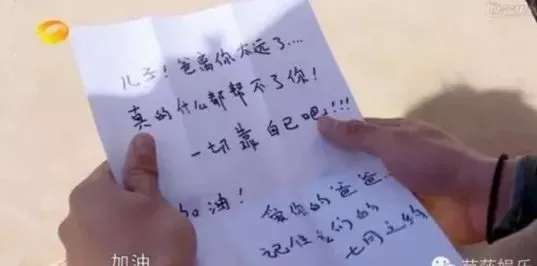 儿子！爸离你太远了....
真的什么都帮不了你！
一切靠自己吧!!!
加油！
爱你的爸爸...
记住我们的
七同之约
加油
莎莎娱乐